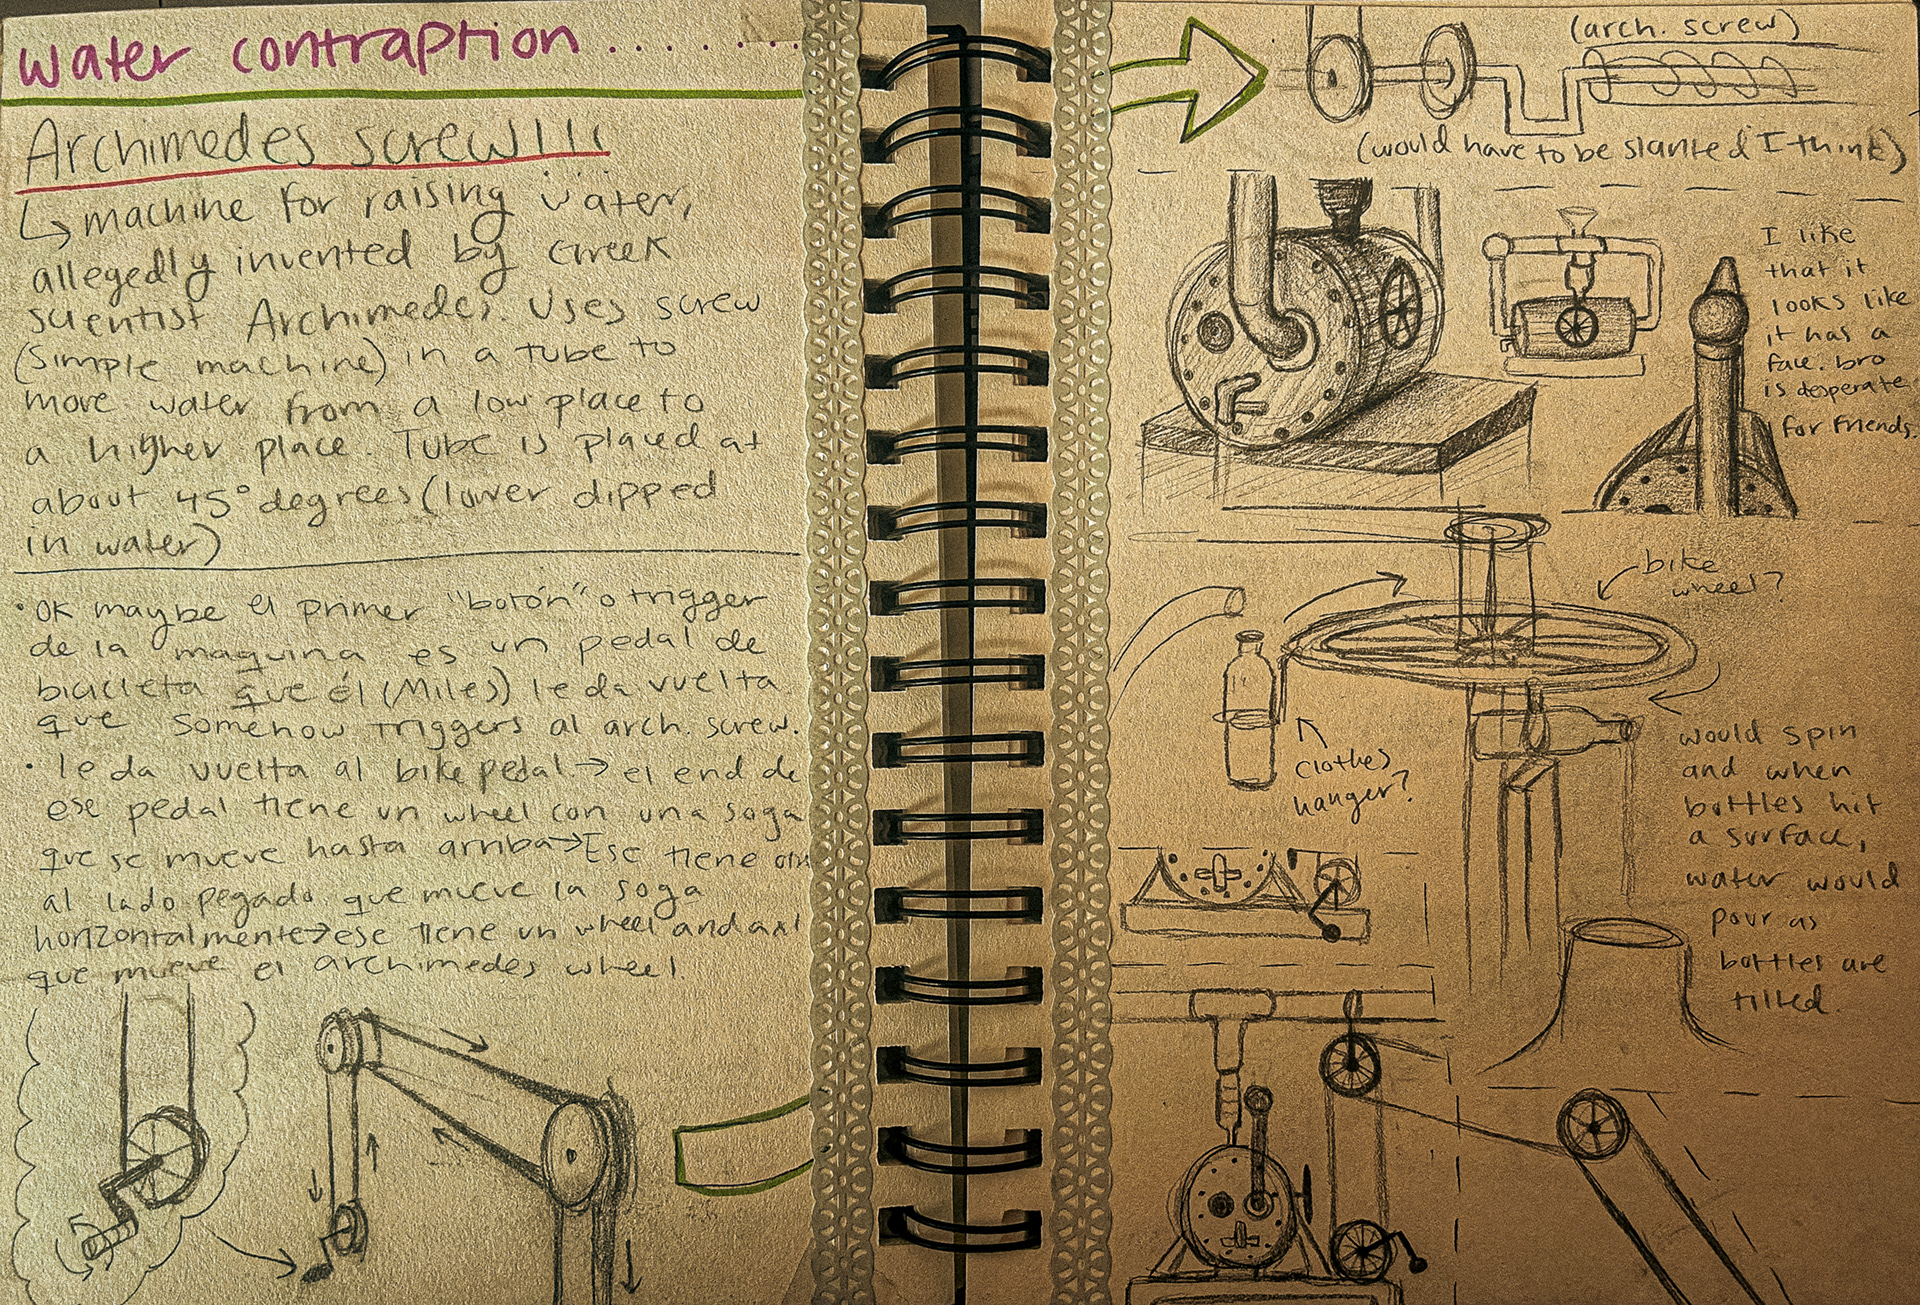 water contraption.......
Archimedes screw!!!
↳ machine for raising water,
allegedly invented by Greek
scientist Archimedes. Uses screw
(simple machine) in a tube to
move water from a low place to
a higher place. Tube is placed at
about 45° degrees (lower dipped
in water)
• OK maybe el primer "botón" o trigger
de la maquina es un pedal de
bicicleta que él (Miles) le da vuelta
que somehow triggers al arch. screw.
• le da vuelta al bike pedal → el end de
ese pedal tiene un wheel con una soga
que se mueve hasta arriba → Ese tiene otr
al lado pegado que mueve la soga
horizontalmente → ese tiene un wheel and axl
que mueve el archimedes wheel
(arch. screw)
(would have to be slanted I think)
I like
that it
looks like
it has a
face. bro
is desperate
for friends.
bike
wheel?
clothes
hanger?
would spin
and when
bottles hit
a surface,
water would
pour as
bottles are
tilted.